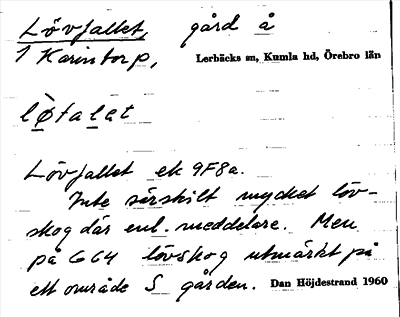 Lövfallet, gård å
1 Karintorp, Lerbäcks sn, Kumla hd, Örebro län
lø̀falat
Lövfallet ek 9F8a.
Inte särskilt mycket löv-
skog där enl. meddelare. Men
på G64 lövskog utmärkt på
ett område S gården. Dan Höjdestrand 1960